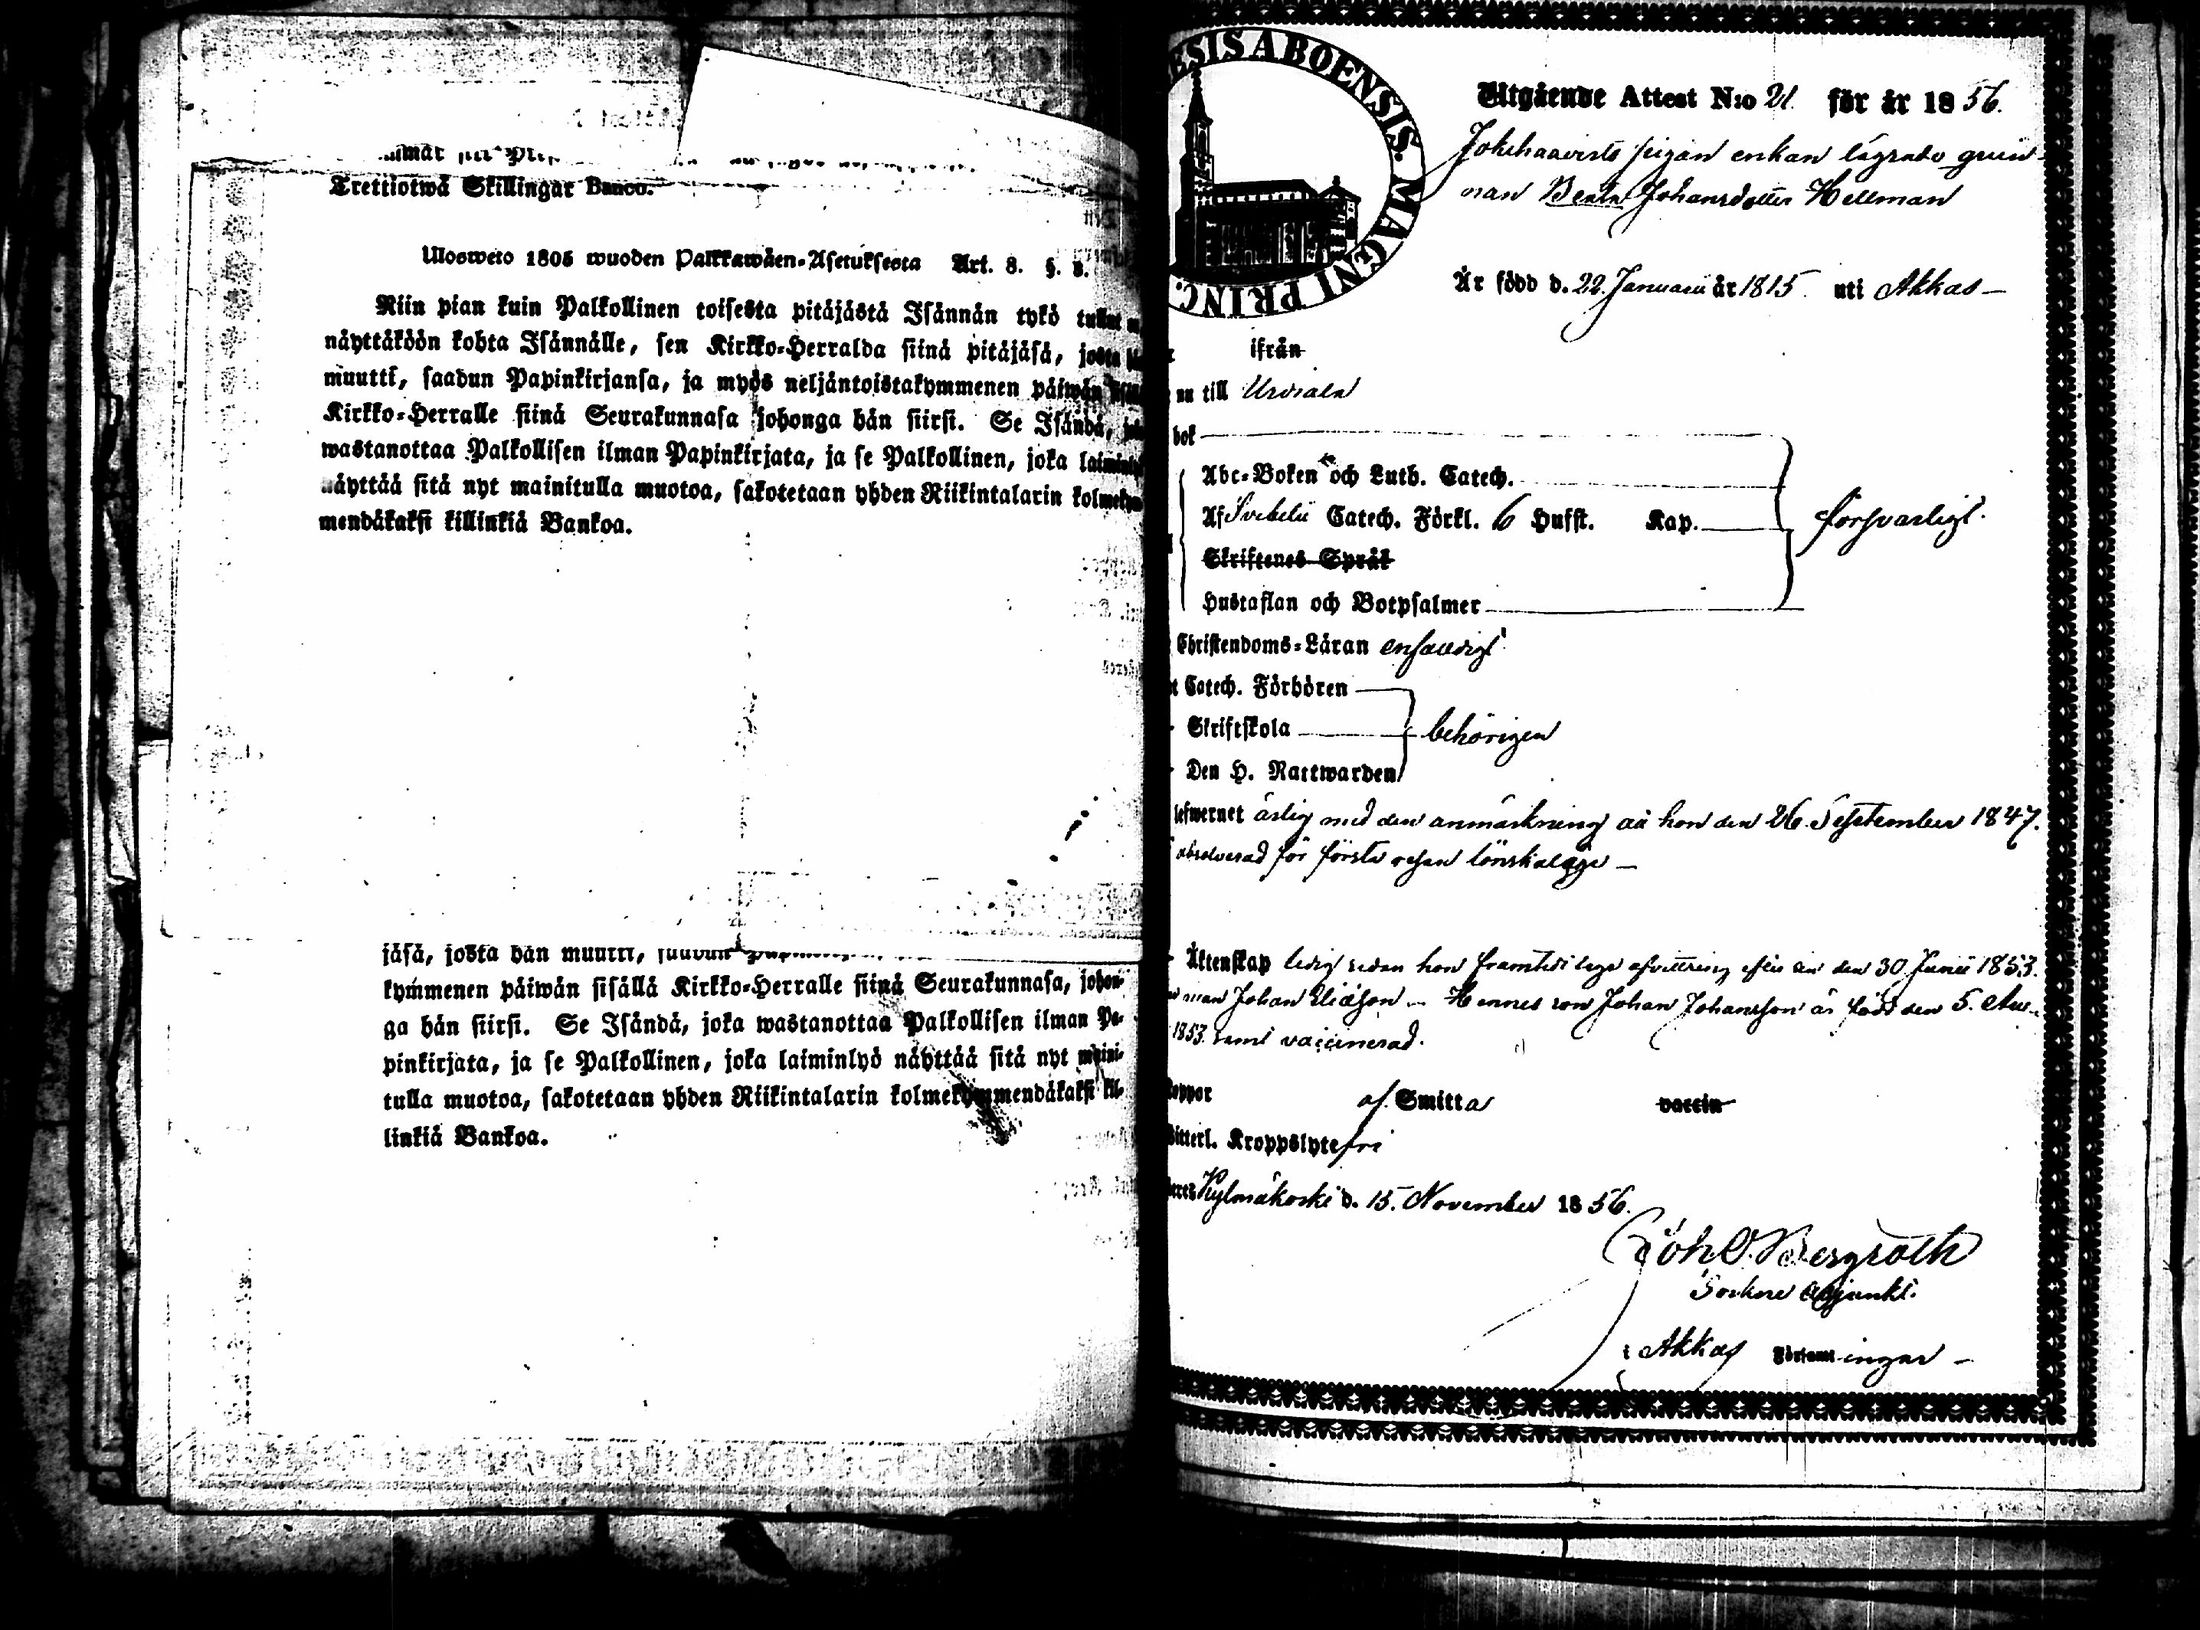 Trettiotwå Skillingar Banco.
Ulosweto 1805 wuoden Palkkawäen-Asetuksesta Art. 8. §. 8.
Niin pian kuin Palkollinen toisesta pitäjästä Isännän tykö tullut
näyttäköön kohta Isännälle, sen Kirkko-Herralda siinä pitäjäsä, josta
muutti, saadun Papinkirjansa, ja myös neljäntoistakymmenen päiwän
Kirkko-Herralle siinä Seurakunnasa johonga hän siirsi. Se Isändä,
wastanottaa Palkollisen ilman Papinkirjata, ja se Palkollinen, joka
näyttää sitä nyt mainitulla muotoa, sakotetaan yhden Riikintalarin
mendäkaksi killinkiä Bankoa.
jäsä, josta hän muutti,
kymmenen päiwän sisällä Kirkko-Herralle siinä Seurakunnasa, johon-
ga hän siirsi. Se Isändä, joka wastanottaa Palkollisen ilman Pa-
pinkirjata, ja se Palkollinen, joka laiminlyö näyttää sitä nyt maini-
tulla muotoa, sakotetaan yhden Riikintalarin kolmekymmendäkaksi kil-
linkiä Bankoa.
ESIS ABOENSIS. MAGNI PRINC.
Utgående Attest N:o 21. för år 1856.
pigan enkan lägrade qvin-
nan Beata Johansdotter Hellman
Är född d. 22. Januarii år 1815. uti Akkas
ifrån
nu till Urdiala
bok
Abc-Boken och Luth. Catech.
Af Svebelii Catech. Förkl. 6 Hufst. Kap. försvarligt.
Skriftenes Språk
Hustaflan och Botpsalmer
Christendoms-Läran enfaldigt
Catech. Förhören
Skriftskola behörigen
Den H. Nattwarden
lefwernet ärlig med den anmärkning att hon den 26. September 1847.
absolverad för första resan lönskaläge
Äktenskap ledig sedan hon framtedt laga afvittring efter sin den 30 Junii 1853.
man Johan Eliasson. Hennes son Johan Johansson är född den 5.
1853. samt vaccinerad.
koppor af Smitta vaccin
Kroppslyte fri
Kylmäkoski d. 15. November 1856.
Joh. O. Bergroth
Sockne Adjunkt.
i Akkas Församlingar